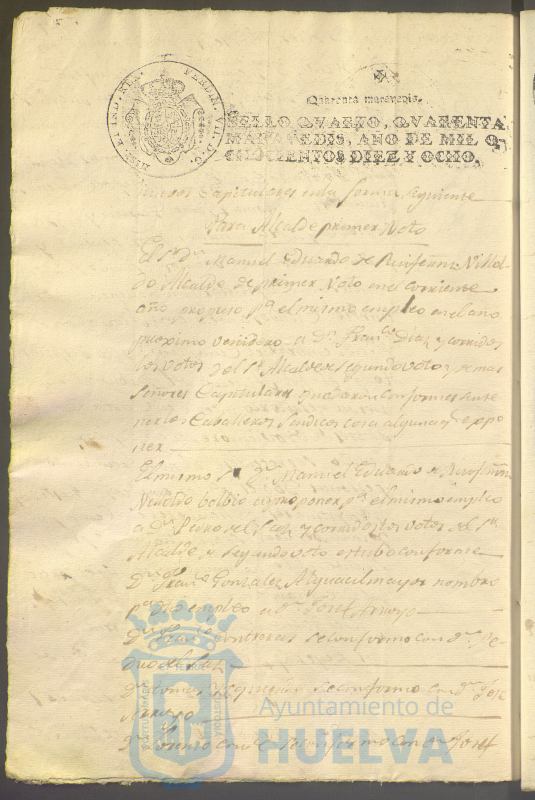 HISP. ET IND. REX. FERDIN. VII. D. G.
Quarenta maravedis.
SELLO QVARTO, QVARENTA
MARAVEDIS, AÑO DE MIL O
CHOCIENTOS DIEZ Y OCHO.
nuevos Capitulares en la forma siguiente
Para Alcalde primer Voto
El Sr Dn Manuel Eduardo de
do Alcalde de primer Voto en el corriente
año propuso pa el mismo empleo en el año
proximo venidero a Dn Franco Diaz y corridos
los votos del Sr Alcalde segundo voto y demas
Señores Capitulares quedaron conformes sin te
ner los Caballeros Sindicos cosa alguna qe expo
ner
El mismo Sr Dn Manuel Eduardo de
bolbio a proponer pa el mismo empleo
a Dn Pedro del y corridos los votos el Sr
Alcalde de segundo voto estubo conforme
Dn Franco Gonzalez Alguacil mayor nombro
pa dho empleo a Dn Josef Arroyo
Dn Contreras se conformo con Dn Pe
dro del
Dn se conformo con Dn Jose
Arroyo
Dn se conformo con Dn Josef
Ayuntamiento de
HUELVA